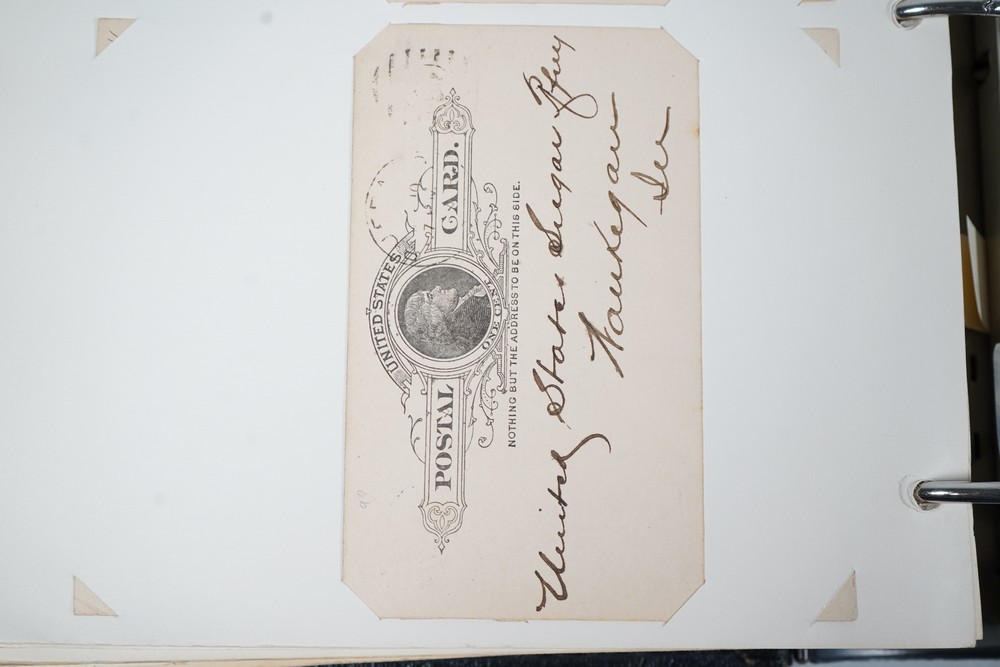 UNITED STATES
POSTAL CARD.
ONE CENT
NOTHING BUT THE ADDRESS TO BE ON THIS SIDE.
United States Sugar Rfney
Waukegan
Ill
90